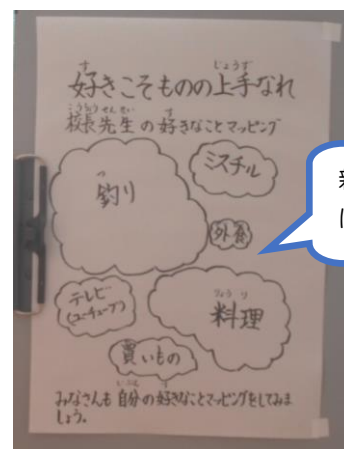 好きこそものの上手なれ
校長先生の好きなことマッピング
ミスチル
釣り
外食
テレビ
(ユーチューブ)
料理
買いもの
みなさんも自分の好きなことマッピングをしてみま
しょう。